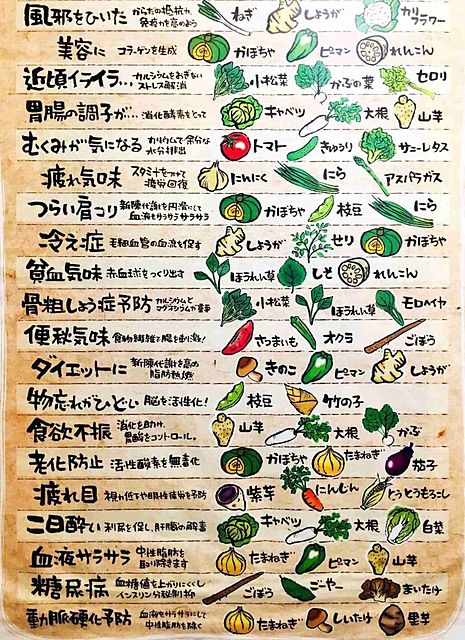 風邪をひいた からだの抵抗力、免疫力を高めよう ねぎ しょうが カリフラワー
美容に コラーゲンを生成 かぼちゃ ピーマン れんこん
近頃イライラ… カルシウムをおぎないストレス解消 小松菜 かぶの葉 セロリ
胃腸の調子が… 消化酵素をとって キャベツ 大根 山芋
むくみが気になる カリウムで余分な水分排出 トマト きゅうり サニーレタス
疲れ気味 スタミナをつけて疲労回復 にんにく にら アスパラガス
つらい肩こり 新陳代謝を円滑にして血液をサラサラサラサラ かぼちゃ 枝豆 にら
冷え症 毛細血管の血流を促す しょうが セリ かぼちゃ
貧血気味 赤血球をつくり出す ほうれい草 しそ れんこん
骨粗しょう症予防 カルシウムとマグネシウムが重要 小松菜 ほうれい草 モロヘイヤ
便秘気味 食物繊維で腸を刺激! さつまいも オクラ ごぼう
ダイエットに 新陳代謝を高め脂肪燃焼 きのこ ピーマン しょうが
物忘れがひどい 脳を活性化! 枝豆 竹の子
食欲不振 消化を助け、胃酸をコントロール。 山芋 大根 かぶ
老化防止 活性酸素を無毒化 かぼちゃ たまねぎ 茄子
疲れ目 視力低下や眼性疲労を予防 紫芋 にんじん とうとうもろこし
二日酔い 利尿を促し、肝臓の解毒 キャベツ 大根 白菜
血液サラサラ 中性脂肪を取り除きます たまねぎ ピーマン 山芋
糖尿病 血糖値を上がりにくくしインスリン分泌制抑 ごぼう ごーや まいたけ
動脈硬化予防 血液をサラサラにして中性脂肪を除く たまねぎ しいたけ 里芋